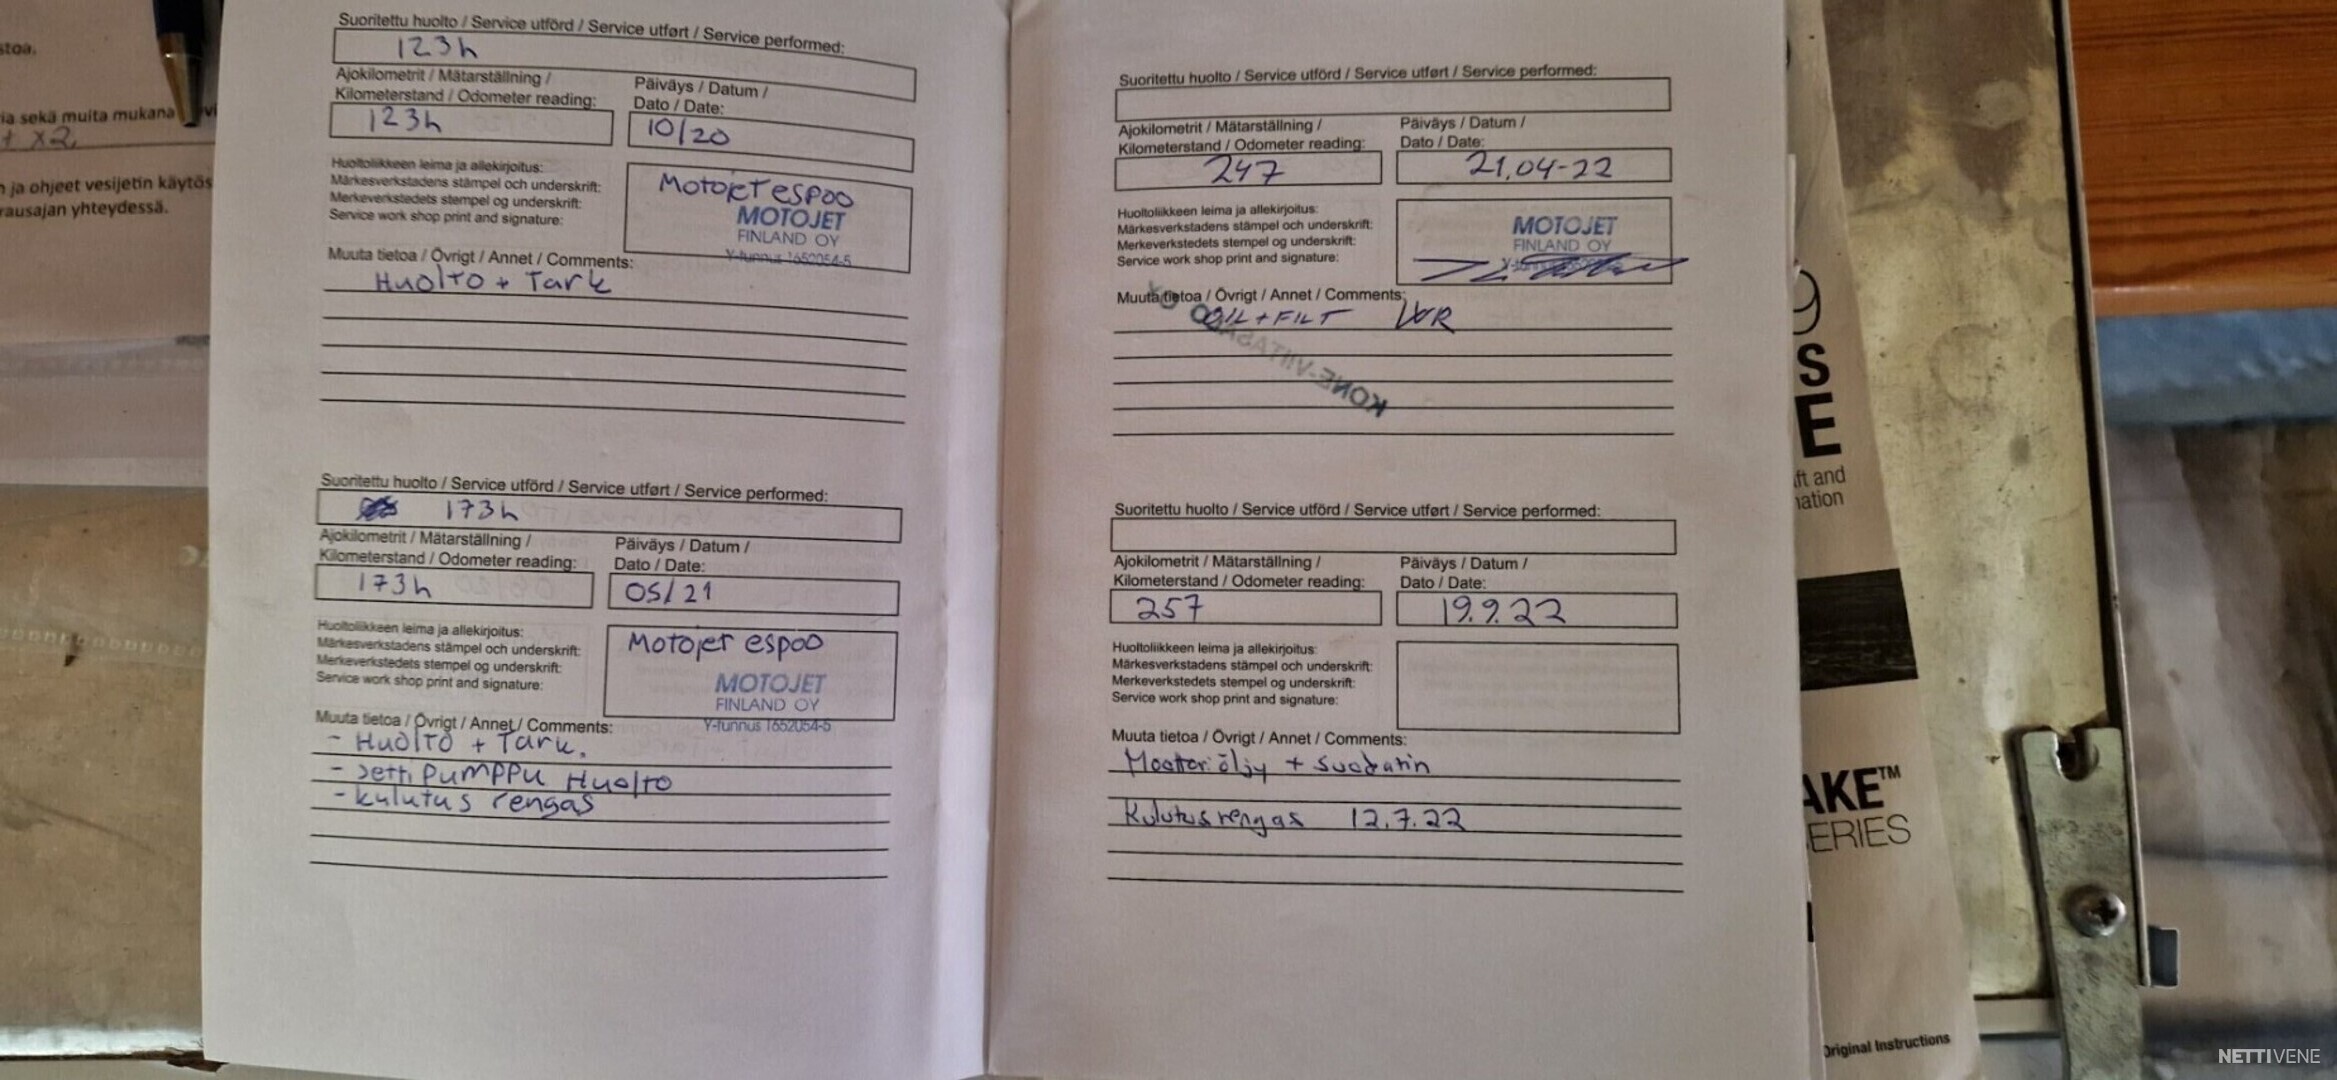 stoa.
ia sekä muita mukana
+ x2
n ja ohjeet vesijetin käytös
rausajan yhteydessä.
Suoritettu huolto / Service utförd / Service utført / Service performed:
123h
Ajokilometrit / Mätarställning /
Kilometerstand / Odometer reading:
123h
Päiväys / Datum /
Dato / Date:
10/20
Huoltoliikkeen leima ja allekirjoitus:
Märkesverkstadens stämpel och underskrift:
Merkeverkstedets stempel og underskrift:
Service work shop print and signature:
Motojet espoo
MOTOJET
FINLAND OY
Y-tunnus 1652054-5
Muuta tietoa / Övrigt / Annet / Comments:
Huolto + Tark
Suoritettu huolto / Service utförd / Service utført / Service performed:
173h
Ajokilometrit / Mätarställning /
Kilometerstand / Odometer reading:
173h
Päiväys / Datum /
Dato / Date:
05/21
Huoltoliikkeen leima ja allekirjoitus:
Märkesverkstadens stämpel och underskrift:
Merkeverkstedets stempel og underskrift:
Service work shop print and signature:
Motojet espoo
MOTOJET
FINLAND OY
Y-tunnus 1652054-5
Muuta tietoa / Övrigt / Annet / Comments:
- Huolto + Tark.
- Jetti pumppu Huolto
- kulutus rengas
Suoritettu huolto / Service utförd / Service utført / Service performed:
Ajokilometrit / Mätarställning /
Kilometerstand / Odometer reading:
247
Päiväys / Datum /
Dato / Date:
21.04-22
Huoltoliikkeen leima ja allekirjoitus:
Märkesverkstadens stämpel och underskrift:
Merkeverkstedets stempel og underskrift:
Service work shop print and signature:
MOTOJET
FINLAND OY
Muuta tietoa / Övrigt / Annet / Comments:
OIL + FILT
KONE-VIITASALO OY
Suoritettu huolto / Service utförd / Service utført / Service performed:
Ajokilometrit / Mätarställning /
Kilometerstand / Odometer reading:
257
Päiväys / Datum /
Dato / Date:
19.9.22
Huoltoliikkeen leima ja allekirjoitus:
Märkesverkstadens stämpel och underskrift:
Merkeverkstedets stempel og underskrift:
Service work shop print and signature:
Muuta tietoa / Övrigt / Annet / Comments:
Moottoriöljy + suodatin
Kulutusrengas 12.7.22
9
S
E
ft and
nation
AKE™
ERIES
Original Instructions
NETTIVENE